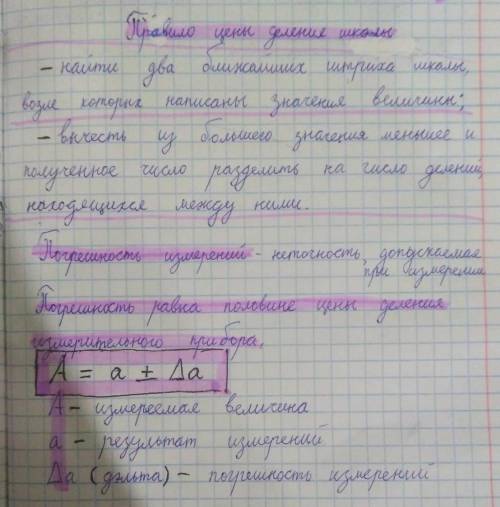 Правило цены деление шкалы
– найти два ближайших штриха шкалы,
возле которых написаны значения величины;
– вычесть из большего значения меньшее и
полученное число разделить на число делений,
находящихся между ними.
Погрешность измерений – неточность, допускаемая
при измерении
Погрешность равна половине цены деления
измерительного прибора.
A = a ± Δa
A – измереемая величина
a – результат измерений
Δa (дэльта) – погрешность измерений